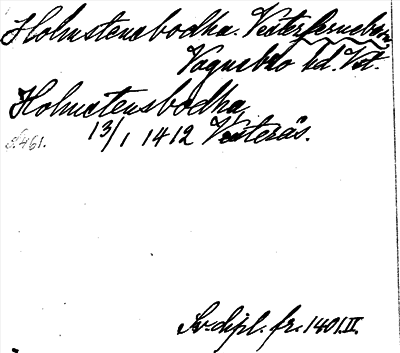 Holmstensbodha. Vesterfernebo sn,
Vagnsbro hd. Vst.
Holmstensbodha
13/1 1412 Vesterås.
S. 461.
Sv. dipl. fr. 1401. II.